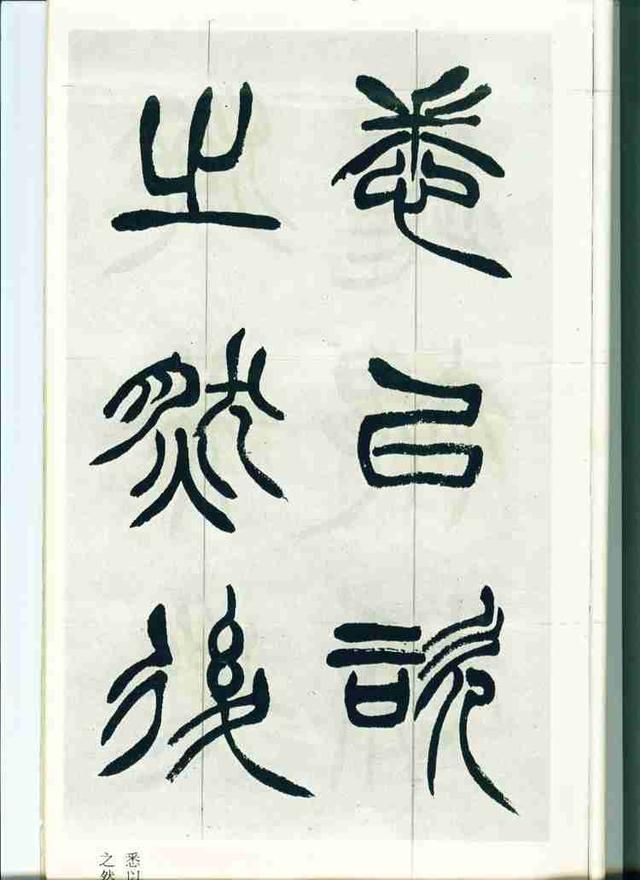 悉以諮
之然後
悉以
之然